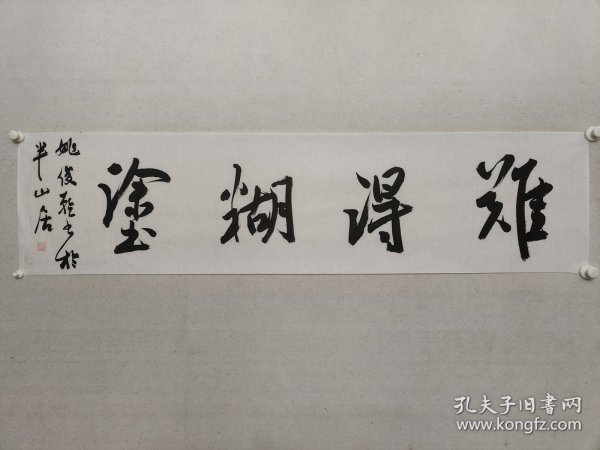 難得糊塗
姚俊卿书於
半山居
孔夫子旧书网
www.kongfz.com